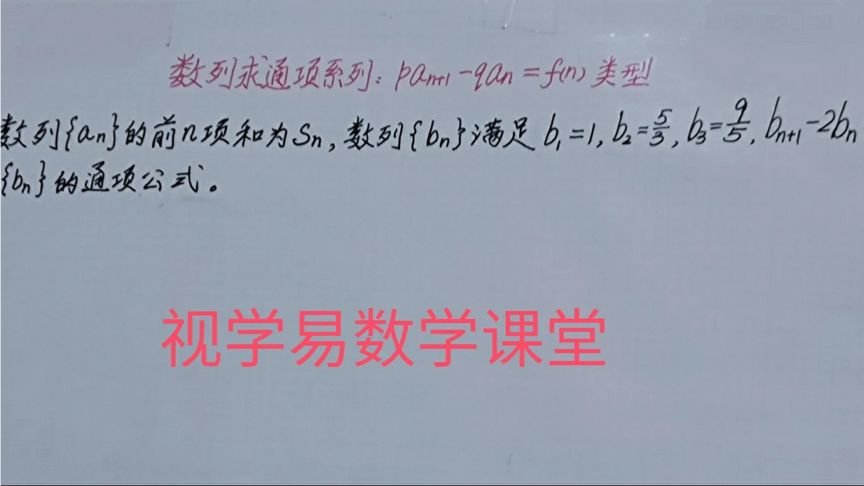 数列求通项系列：paₙ₊₁-qaₙ=f(n) 类型
数列{aₙ}的前n项和为Sₙ，数列{bₙ}满足 b₁=1, b₂=5/3, b₃=9/5, bₙ₊₁-2bₙ
{bₙ}的通项公式。
视学易数学课堂